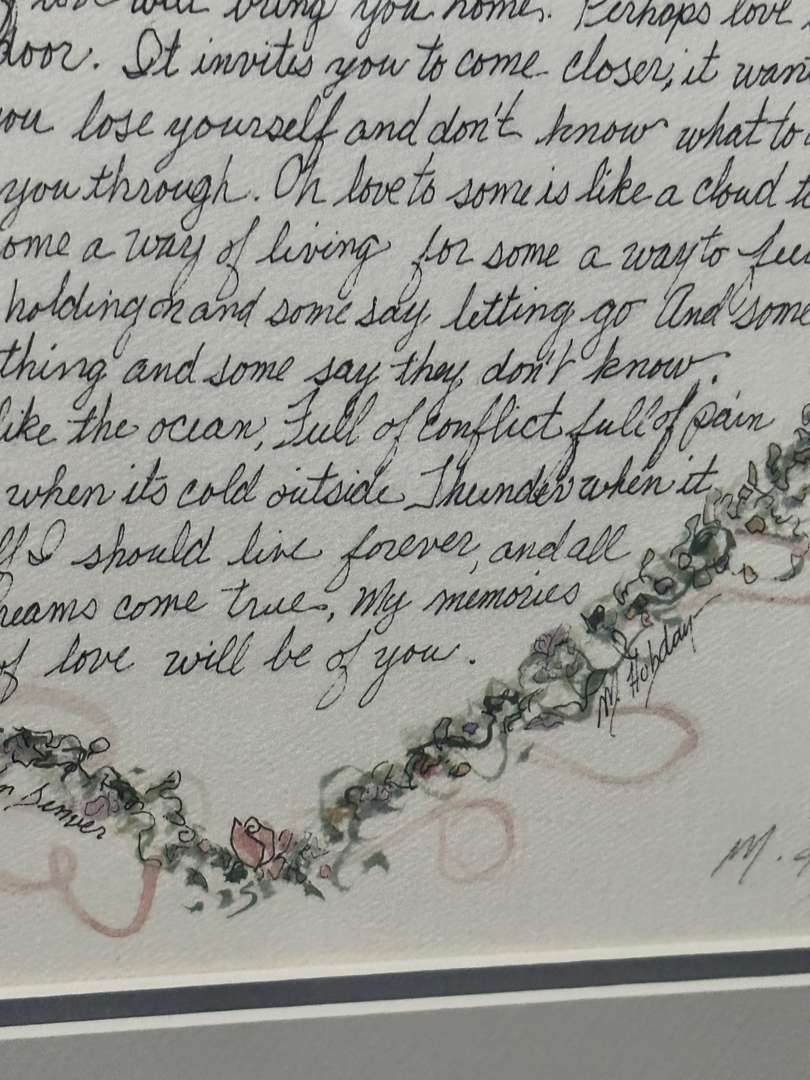 love will bring you home. Perhaps love
door. It invites you to come closer, it want
you lose yourself and don't know what to
you through. Oh love to some is like a cloud to
ome a way of living for some a way to feel
holding on and some say letting go And some
thing and some say they don't know.
like the ocean, Full of conflict full of pain
when its cold outside Thunder when it
ll I should live forever, and all
reams come true, My memories
of love will be of you.
M. Hobday
n Denver
M.